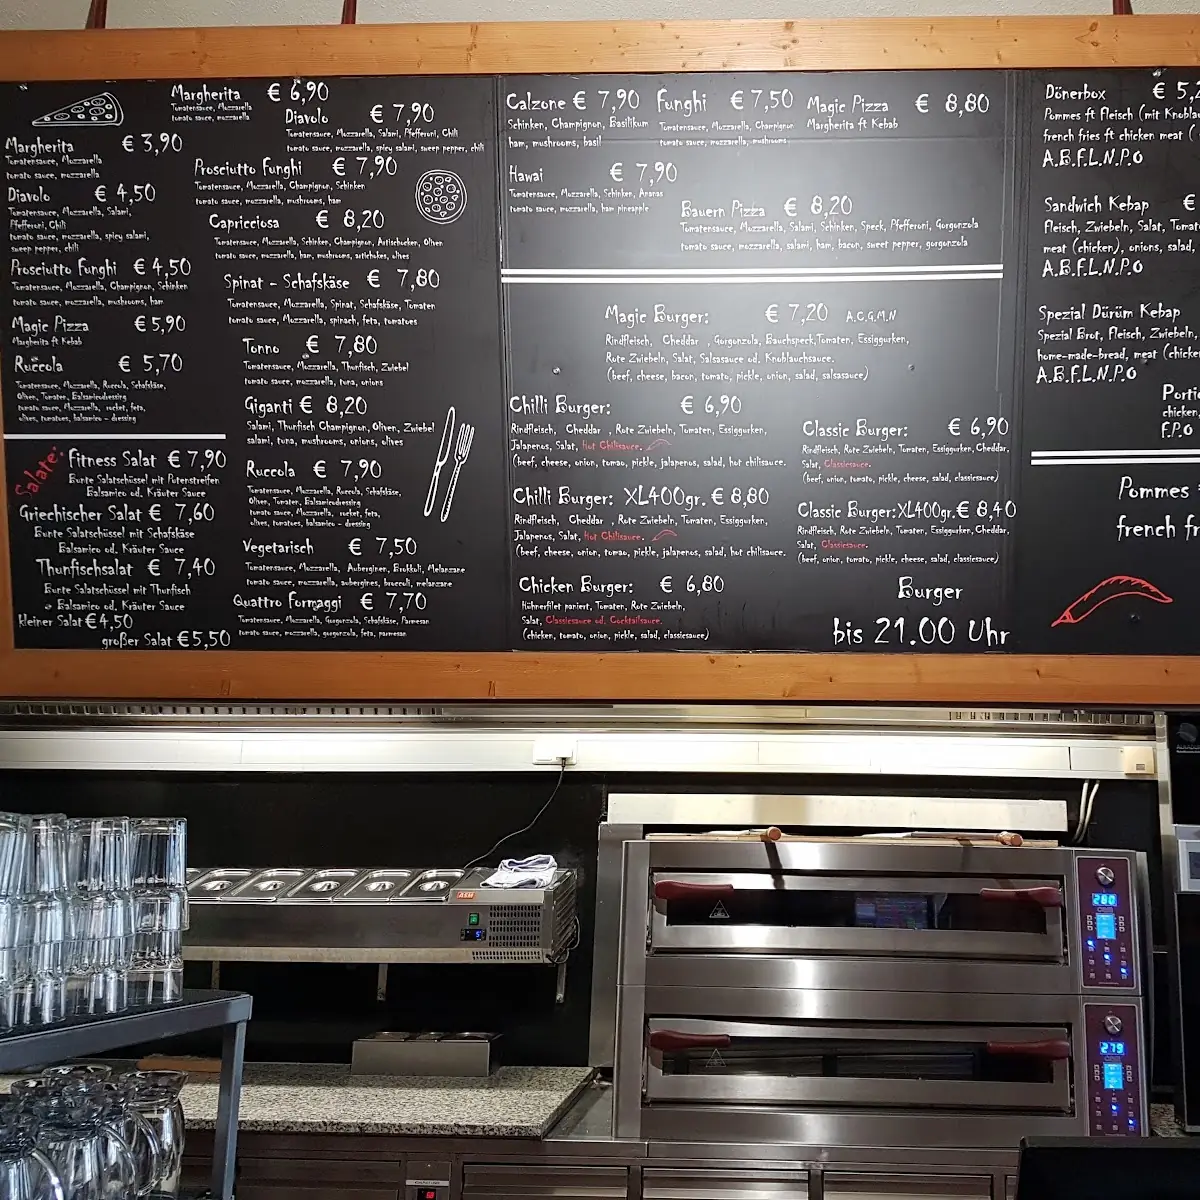 Margherita € 3,90
Tomatensauce, Mozzarella
tomato sauce, mozzarella
Diavolo € 4,50
Tomatensauce, Mozzarella, Salami,
Pfefferoni, Chili
tomato sauce, mozzarella, spicy salami,
sweep pepper, chili
Prosciutto Funghi € 4,50
Tomatensauce, Mozzarella, Champignon, Schinken
tomato sauce, mozzarella, mushrooms, ham
Magic Pizza € 5,90
Margherita ft Kebab
Ruccola € 5,70
Tomatensauce, Mozzarella, Ruccola, Schafskäse,
Oliven, Tomaten, Balsamicodressing
tomato sauce, Mozzarella, rocket, feta,
olives, tomatoes, balsamico - dressing
Salate:
Fitness Salat € 7,90
Bunte Salatschüssel mit Putenstreifen
Balsamico od. Kräuter Sauce
Griechischer Salat € 7,60
Bunte Salatschüssel mit Schafskäse
Balsamico od. Kräuter Sauce
Thunfischsalat € 7,40
Bunte Salatschüssel mit Thunfisch
Balsamico od. Kräuter Sauce
kleiner Salat € 4,50
großer Salat € 5,50
Margherita € 6,90
Tomatensauce, Mozzarella
tomato sauce, mozzarella
Diavolo € 7,90
Tomatensauce, Mozzarella, Salami, Pfefferoni, Chili
tomato sauce, mozzarella, spicy salami, sweep pepper, chili
Prosciutto Funghi € 7,90
Tomatensauce, Mozzarella, Champignon, Schinken
tomato sauce, mozzarella, mushrooms, ham
Capricciosa € 8,20
Tomatensauce, Mozzarella, Schinken, Champignon, Artischocken, Oliven
tomato sauce, mozzarella, ham, mushrooms, artichokes, olives
Spinat - Schafskäse € 7,80
Tomatensauce, Mozzarella, Spinat, Schafskäse, Tomaten
tomato sauce, Mozzarella, spinach, feta, tomatoes
Tonno € 7,80
Tomatensauce, Mozzarella, Thunfisch, Zwiebel
tomato sauce, mozzarella, tuna, onions
Giganti € 8,20
Salami, Thunfisch Champignon, Oliven, Zwiebel
salami, tuna, mushrooms, onions, olives
Ruccola € 7,90
Tomatensauce, Mozzarella, Ruccola, Schafskäse,
Oliven, Tomaten, Balsamicodressing
tomato sauce, Mozzarella, rocket, feta,
olives, tomatoes, balsamico - dressing
Vegetarisch € 7,50
Tomatensauce, Mozzarella, Auberginen, Brokkoli, Melanzane
tomato sauce, mozzarella, aubergines, broccoli, melanzane
Quattro Formaggi € 7,70
Tomatensauce, Mozzarella, Gorgonzola, Schafskäse, Parmesan
tomato sauce, mozzarella, gorgonzola, feta, parmesan
Calzone € 7,90
Schinken, Champignon, Basilikum
ham, mushrooms, basil
Funghi € 7,50
Tomatensauce, Mozzarella, Champignon
tomato sauce, mozzarella, mushrooms
Magic Pizza € 8,80
Margherita ft Kebab
Hawai € 7,90
Tomatensauce, Mozzarella, Schinken, Ananas
tomato sauce, mozzarella, ham pineapple
Bauern Pizza € 8,20
Tomatensauce, Mozzarella, Salami, Schinken, Speck, Pfefferoni, Gorgonzola
tomato sauce, mozzarella, salami, ham, bacon, sweet pepper, gorgonzola
Magic Burger: € 7,20 A.C.G.M.N
Rindfleisch, Cheddar , Gorgonzola, Bauchspeck,Tomaten, Essiggurken,
Rote Zwiebeln, Salat, Salsasauce od. Knoblauchsauce.
(beef, cheese, bacon, tomato, pickle, onion, salad, salsasauce)
Chilli Burger: € 6,90
Rindfleisch, Cheddar , Rote Zwiebeln, Tomaten, Essiggurken,
Jalapenos, Salat, Hot Chilisauce.
(beef, cheese, onion, tomao, pickle, jalapenos, salad, hot chilisauce.
Chilli Burger: XL400gr. € 8,80
Rindfleisch, Cheddar , Rote Zwiebeln, Tomaten, Essiggurken,
Jalapenos, Salat, Hot Chilisauce.
(beef, cheese, onion, tomao, pickle, jalapenos, salad, hot chilisauce.
Chicken Burger: € 6,80
Hühnerfilet paniert, Tomaten, Rote Zwiebeln,
Salat, Classicsauce od. Cocktailsauce.
(chicken, tomato, onion, pickle, salad, classicsauce)
Classic Burger: € 6,90
Rindfleisch, Rote Zwiebeln, Tomaten, Essiggurken, Cheddar,
Salat, Classicsauce.
(beef, onion, tomato, pickle, cheese, salad, classicsauce)
Classic Burger:XL400gr.€ 8,40
Rindfleisch, Rote Zwiebeln, Tomaten, Essiggurken, Cheddar,
Salat, Classicsauce.
(beef, onion, tomato, pickle, cheese, salad, classicsauce)
Burger
bis 21.00 Uhr
Dönerbox € 5,2
Pommes ft Fleisch (mit Knoblau
french fries ft chicken meat (
A.B.F.L.N.P.O
Sandwich Kebap €
Fleisch, Zwiebeln, Salat, Tomat
meat (chicken), onions, salad,
A.B.F.L.N.P.O
Spezial Dürüm Kebap
Spezial Brot, Fleisch, Zwiebeln,
home-made-bread, meat (chicken
A.B.F.L.N.P.O
Portio
chicken,
F.P.O
Pommes
french fr
280
279